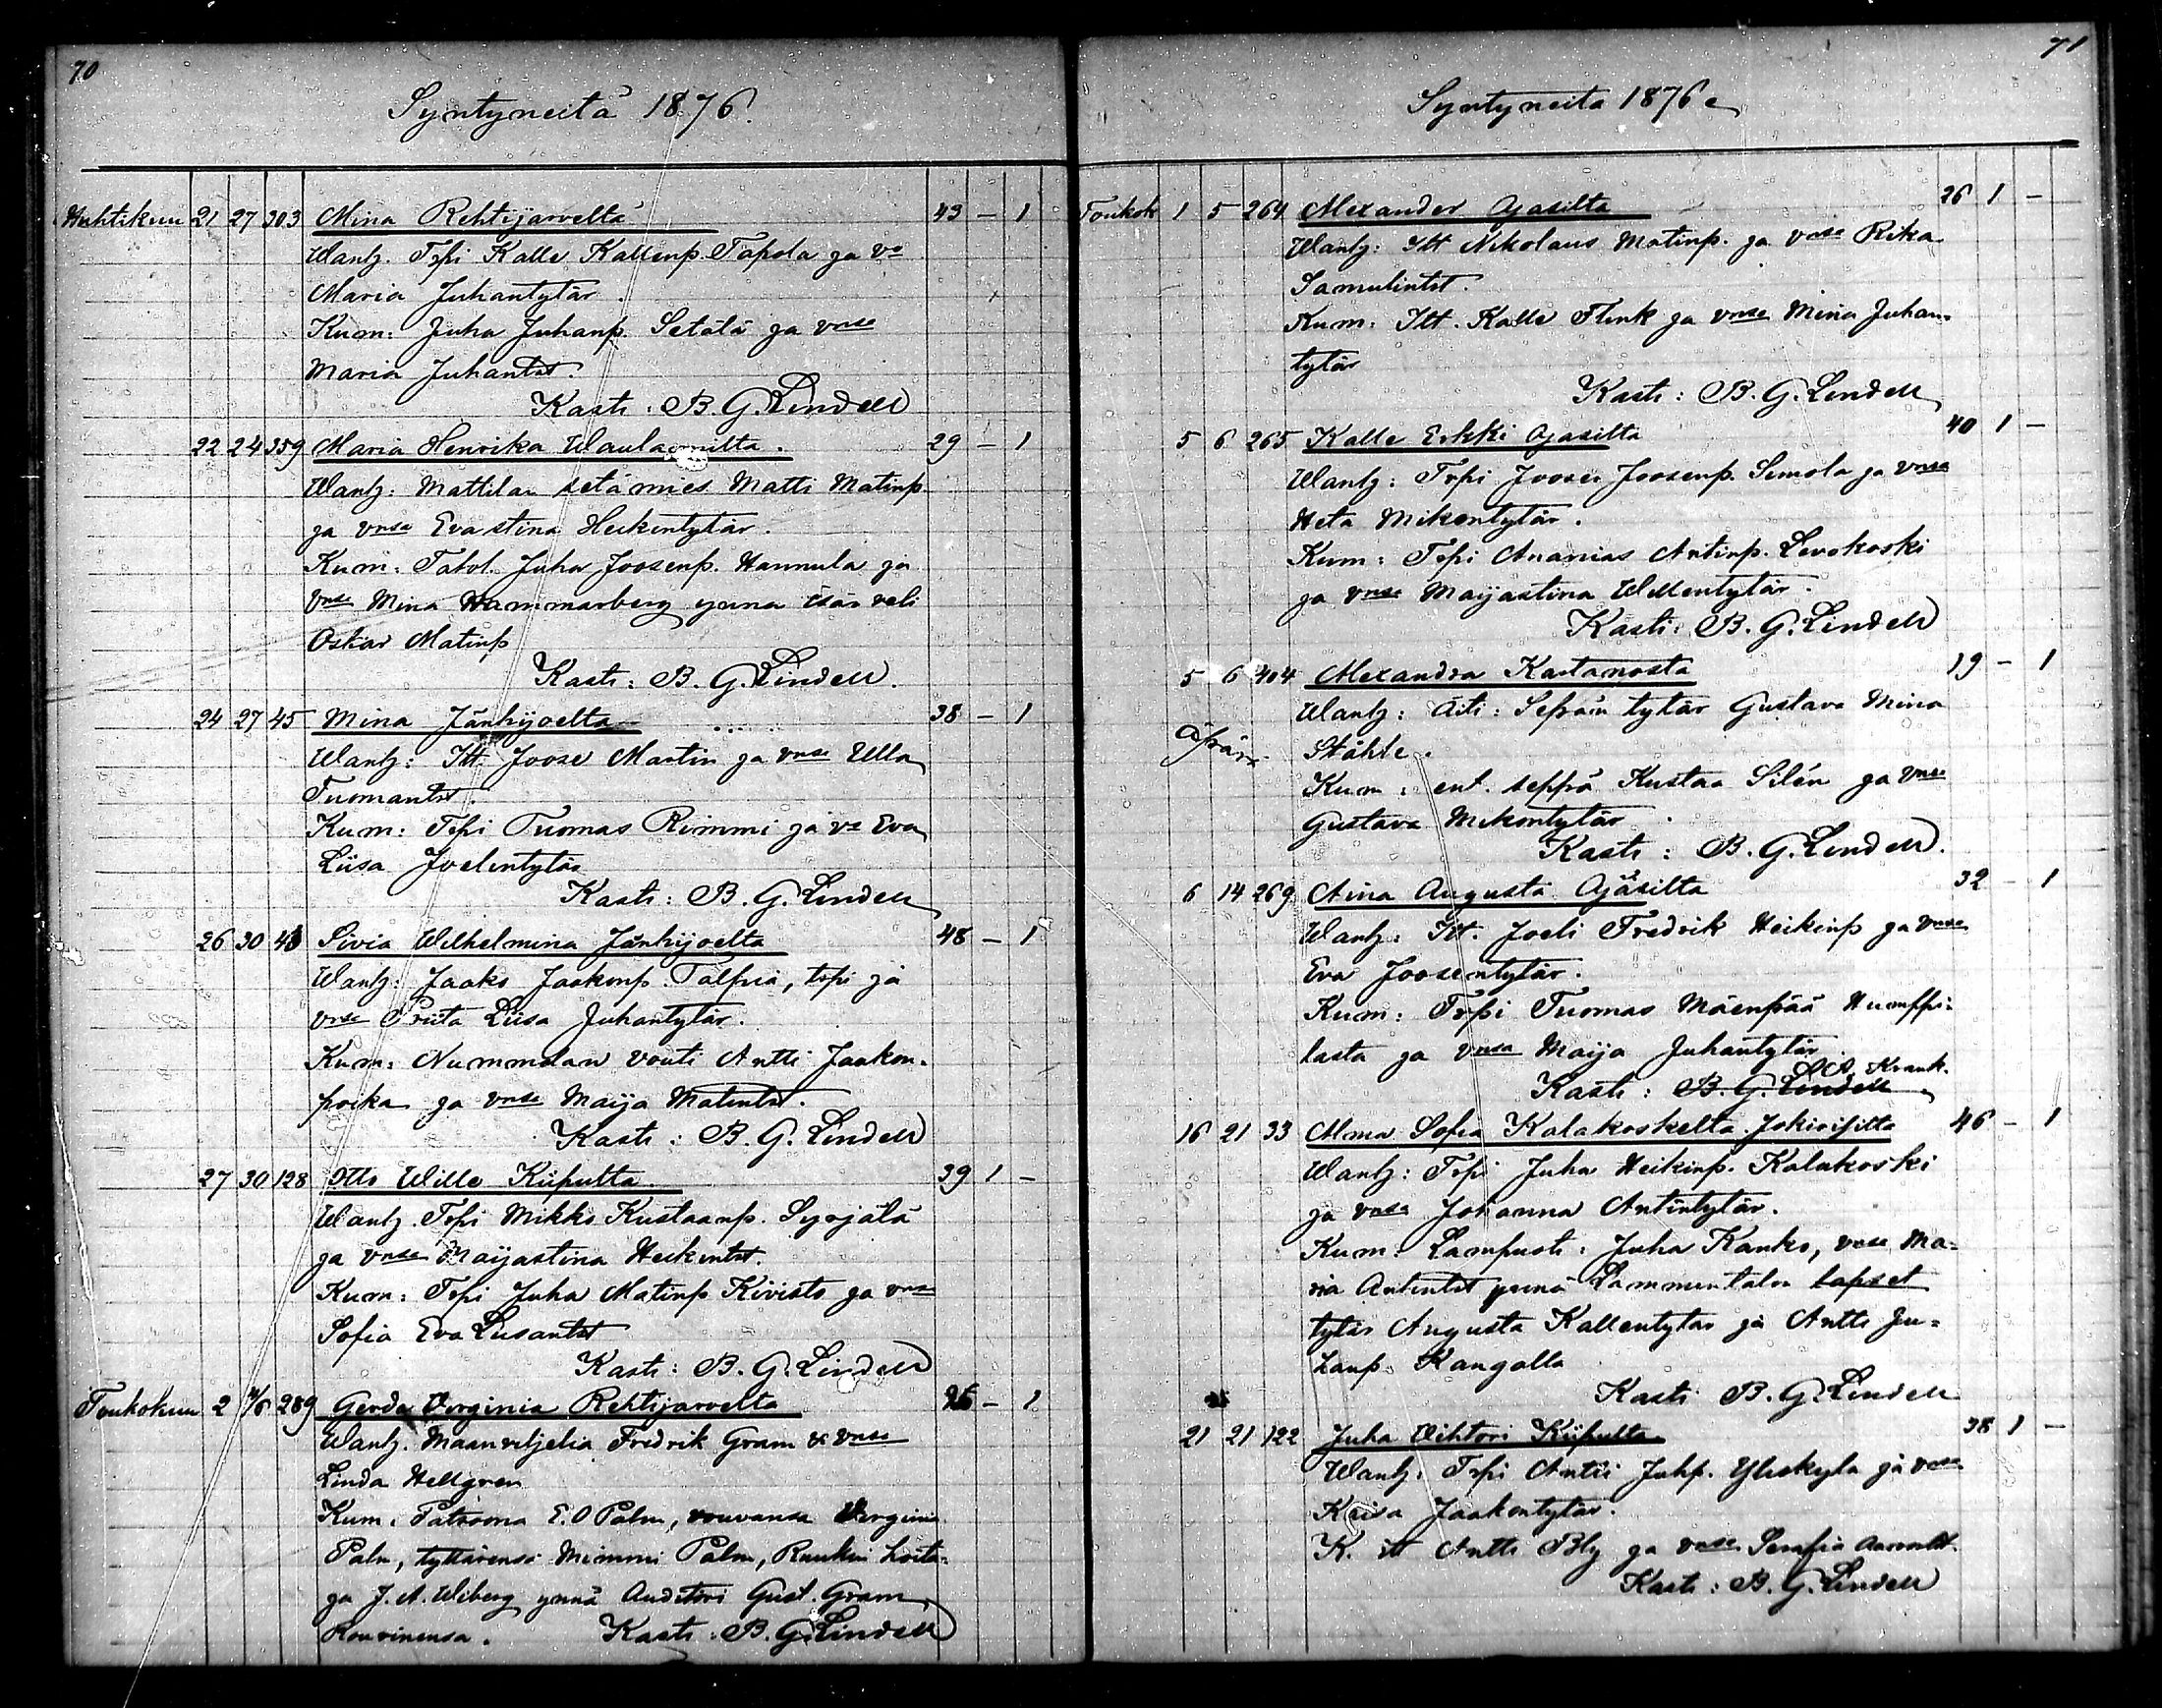 70
Syntyneitä 1876.
Huhtikuu 21 27 303 Mina Rehtijärveltä 43 – 1
Wanh. Trpi Kalle Kallenp. Tapola ja va
Maria Juhantytär.
Kum: Juha Juhanp. Setälä ja vmsa
Maria Juhantr.
Kasti: B. G. Lindell
22 24 359 Maria Henrika 29 – 1
Wanh: Mattilan setämies Matti Matinp
ja vmsa Evastina Heikintytär.
Kum: Juha Joosenp. Hannula ja
vmsa Mina Hammarberg ynnä isän veli
Oskar Matinp
Kasti: B. G. Lindell.
24 27 45 Mina Jänhijoelta 38 – 1
Wanh: Itt. Joose Martin ja vmsa Ulla
Tuomantr.
Kum: Trpi Tuomas Rimmi ja va Eva
Liisa Joelintytär
Kasti: B. G. Lindell
26 30 Sivia Wilhelmina Jänhijoelta 48 – 1
Wanh: Jaako Jaakonp. Talpia, trpi ja
vmsa Priita Liisa Juhantytär.
Kum: Nummelan vouti Antti Jaakon-
poika ja vmsa Maija Matintr.
Kasti: B. G. Lindell
27 30 128 Otto Wille Kiipulta 39 1 –
Wanh. Trpi Mikko Kustaanp. Syrjälä
ja vmsa Maijastina Heikintr.
Kum: Trpi Juha Matinp Kivistö ja vmsa
Sofia Eva Liisantr
Kasti: B. G. Lindell
Toukokuu 2 4/6 289 Gerda Virginia Rehtijärveltä – 1
Wanh. Maanviljeliä Fredrik Gram & vmsa
Linda Hellgren
Kum: Patroona E. O Palm, rouvansa Virginia
Palm, tyttärensä Mimmi Palm, Ruukin hoita-
ja J. A. Wiberg ynnä Auditöri Gust. Gram
Rouvinensa. Kasti: B. G. Lindell
71
Syntyneitä 1876
Toukok 1 5 264 Alexander Ojasilta 26 1 –
Wanh: Itt Nikolaus Matinp. ja vmsa Rika
Samulintr.
Kum: Itt. Kalle Flink ja vmsa Mina Juhan-
tytär
Kasti: B. G. Lindell
5 6 265 Kalle Erkki Ojasilta 40 1 –
Wanh: Trpi Joosei Joosenp. Simola ja vmsa
Heta Mikontytär.
Kum: Trpi Ananias Antinp. Levokoski
ja vmsa Maijastina Willentytär.
Kasti: B. G. Lindell
5 6 404 Alexandra Kartanosta 19 – 1
Wanh: Äiti: Sepän tytär Gustava Mina
äpärä Ståhle.
Kum: ent. seppä Kustaa Silén ja vmsa
Gustava Mikontytär.
Kasti: B. G. Lindell.
6 14 269 Aina Augusta Ojasilta 32 – 1
Wanh: Itt. Joeli Fredrik Heikinp ja vmsa
Eva Joosentytär.
Kum: Trpi Tuomas Mäenpää Humppi-
lasta ja vmsa Maija Juhantytär.
Kasti: B. G. Lindell A. Krank.
16 21 33 Alma Sofia Kalakoskelta Jokioisilta 46 – 1
Wanh: Trpi Juha Heikinp. Kalakoski
ja vmsa Johanna Antintytär.
Kum: Lampuoti: Juha Kanko, vmsa Ma-
ria Antintr ynnä Lammintalon lapset
tytär Augusta Kallentytär ja Antti Ju-
hanp. Kangalla
Kasti B. G. Lindell
21 21 122 Juha Vihtori Kiipulta 38 1 –
Wanh: Trpi Antti Juhp. Yliskylä ja vmsa
Kaisa Jaakontytär.
K. itt Antti Bly ja vmsa Serafia
Kasti: B. G. Lindell